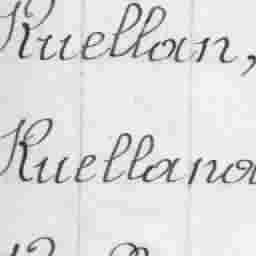 Ruellan,
Ruellano